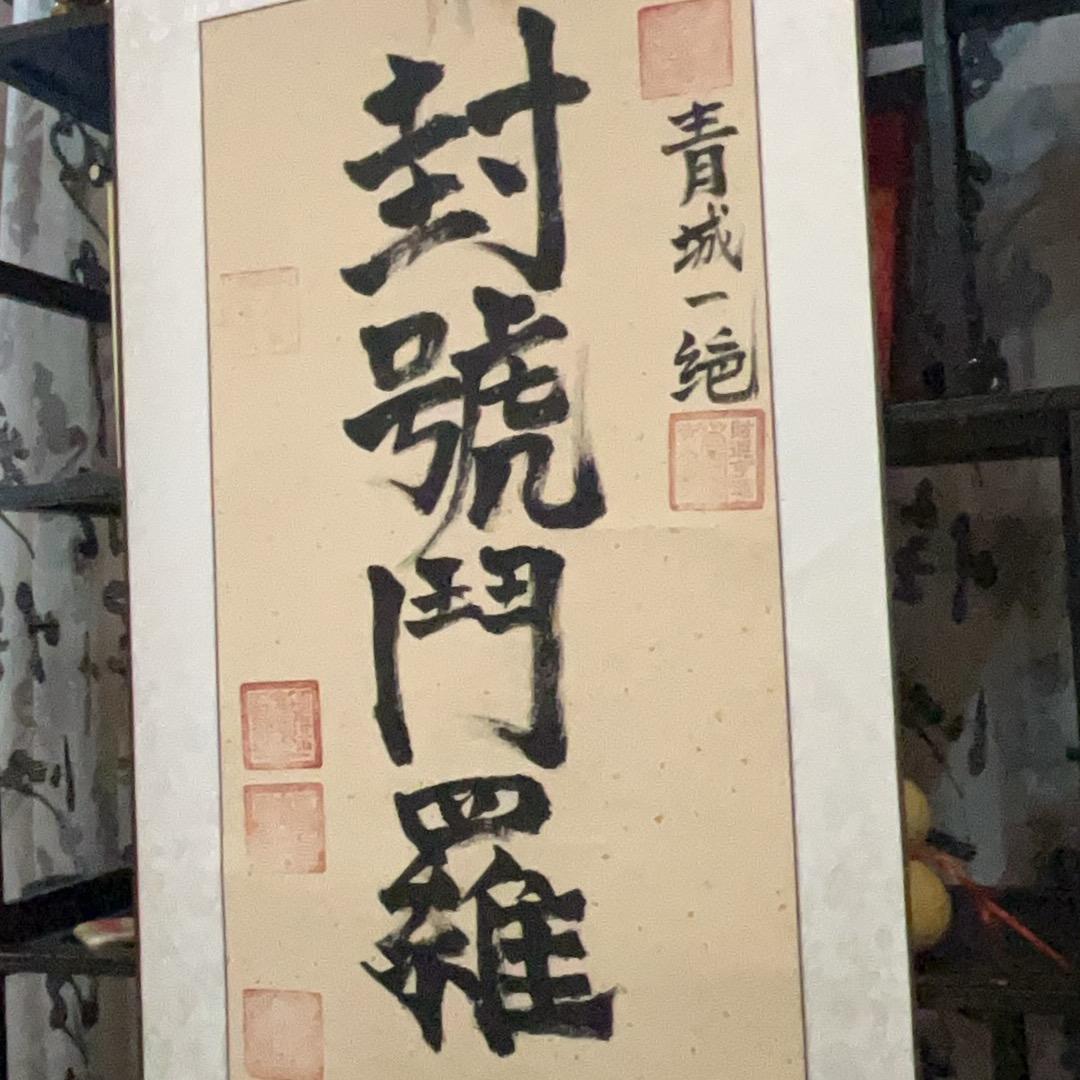 青城一绝
封號鬥羅